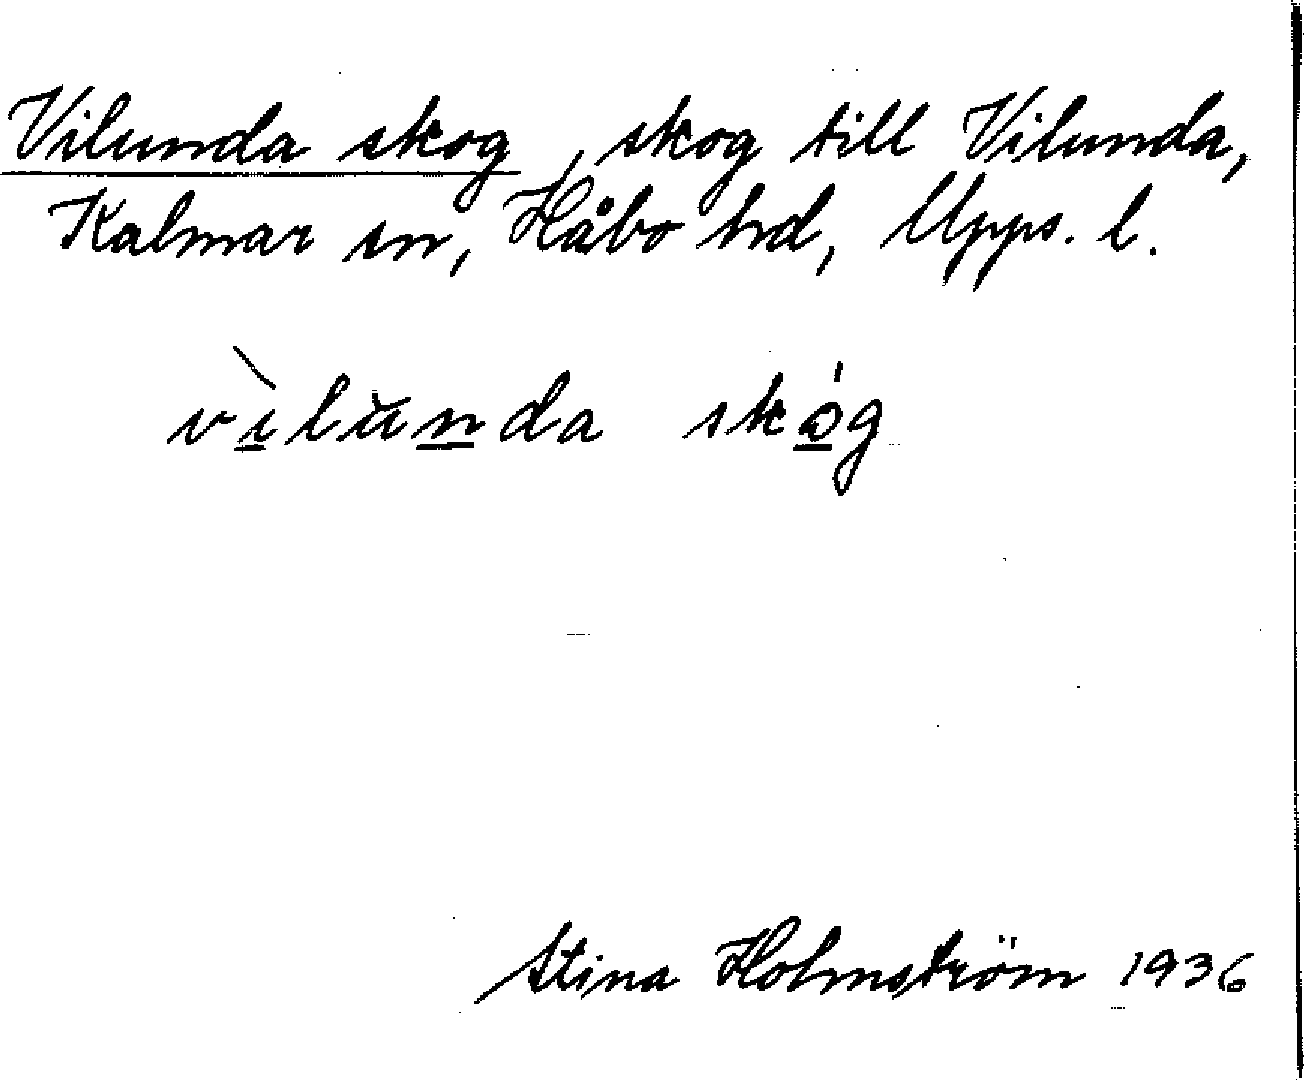 Vilunda skog, skog till Vilunda,
Kalmar sn, Håbo hd, Upps. l.
vìlùnda skóg
Stina Holmström 1936